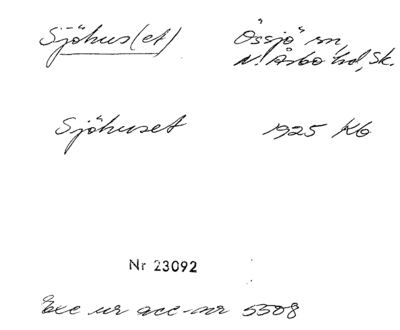 Sjöhus(et) "Össjö" sn,
N. Åsbo hd, Sk.
Sjöhuset 1925 Kb
Nr 23092
Exc ur acc-nr 5508